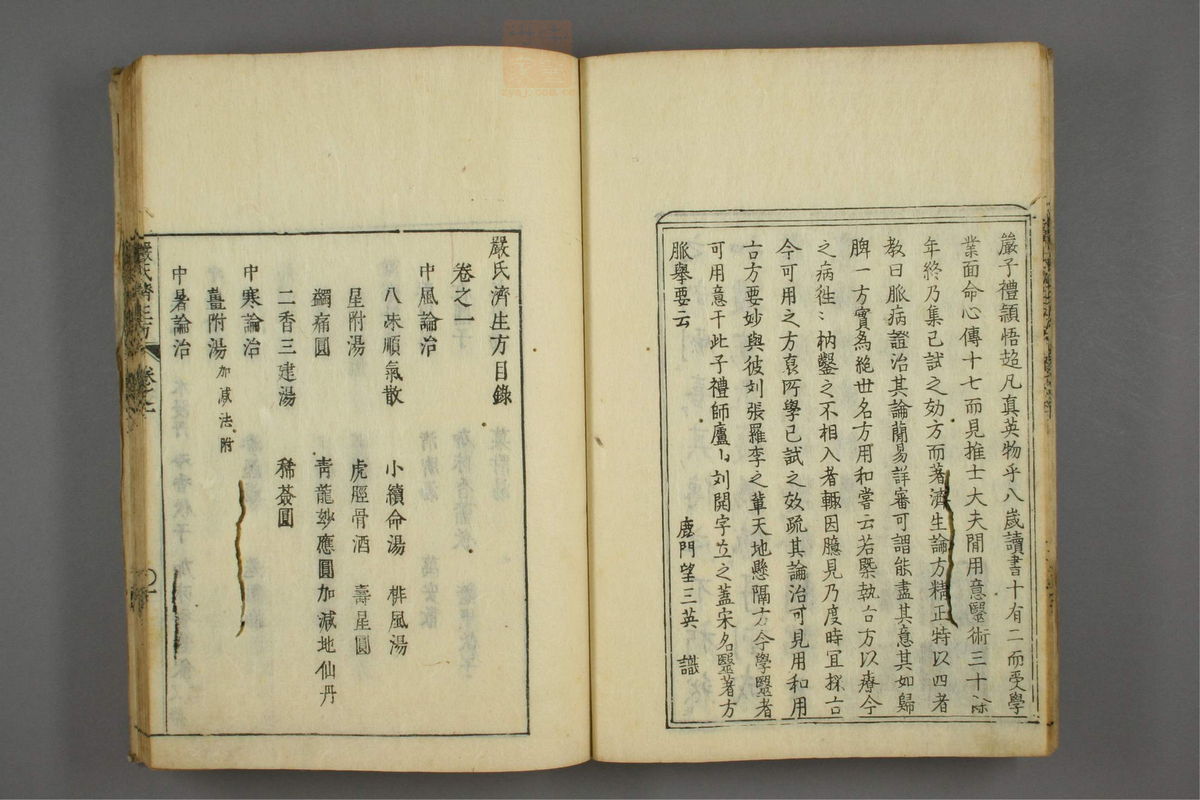 嚴子禮頴悟超凡真英物乎八歳讀書十有二而受學
業面命心傳十七而見推士大夫間用意醫術三十餘
年終乃集已試之効方而著濟生論方精正特以四者
教曰脈病證治其論簡易詳審可謂能盡其意其如歸
脾一方實為絶世名方用和嘗云若槩執古方以療今
之病徃〻枘鑿之不相入者輙因臆見乃度時宜採古
今可用之方裒所學已試之效疏其論治可見用和用
古方要妙與彼刘張羅李之軰天地懸隔方今學醫者
可用意于此子禮師廬山刘開字立之蓋宋名醫著方
脈舉要云
鹿門望三英 識
嚴氏濟生方目錄
卷之一
中風論治
八味順氣散 小續命湯 排風湯
星附湯 虎脛骨酒 壽星圓
蠲痛圓 青龍妙應圓加減地仙丹
二香三建湯 豨薟圓
中寒論治
薑附湯加减法附
中暑論治
嚴氏濟生方 卷之一